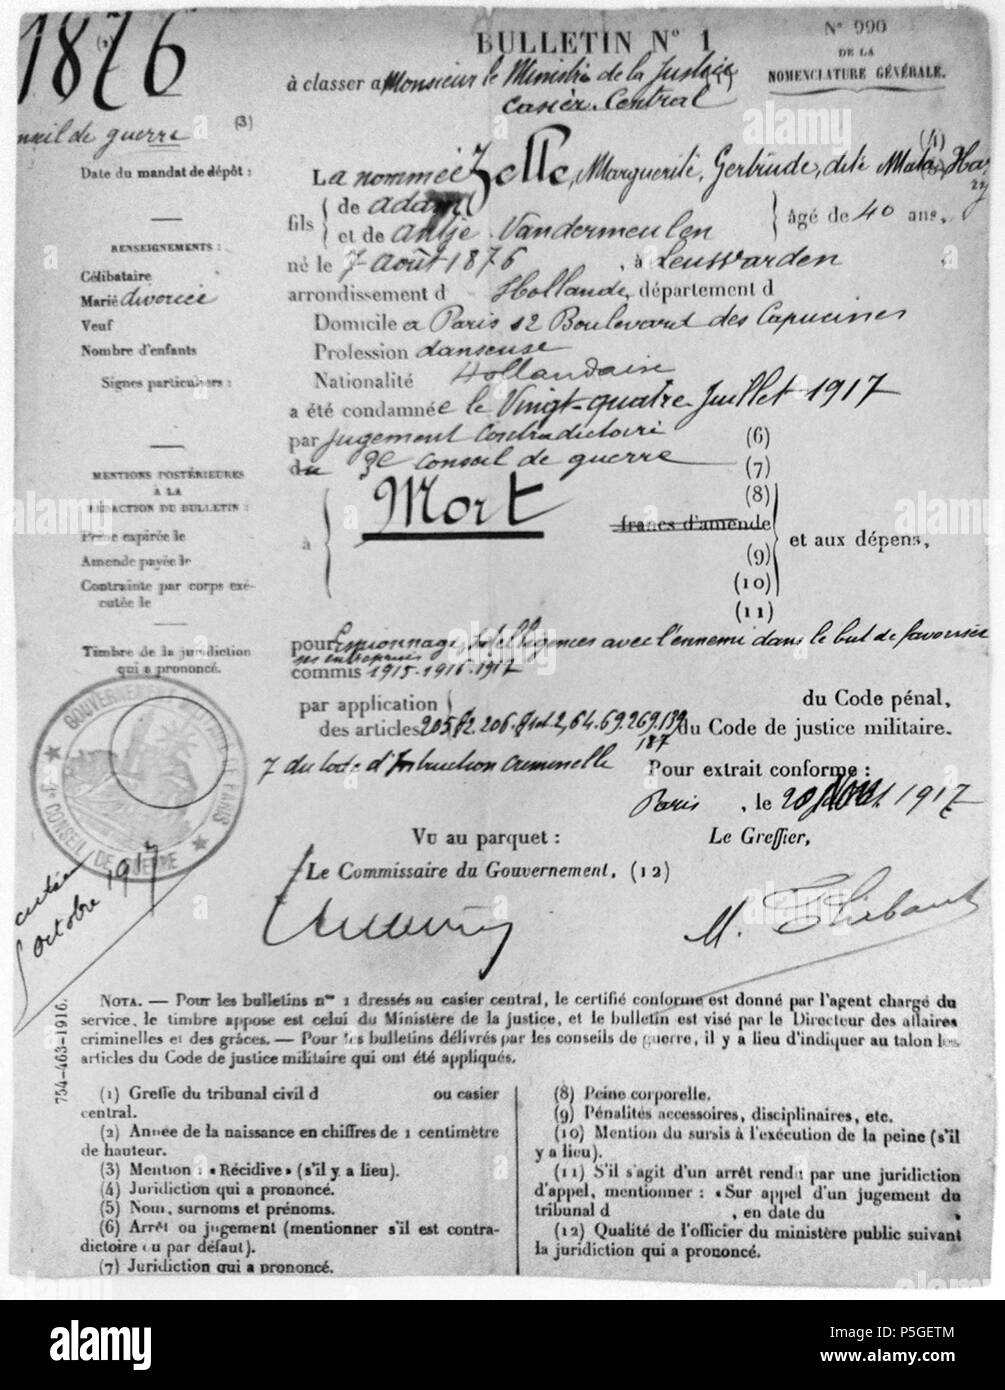 1876
(2)
BULLETIN N° 1
N° 990
DE LA
NOMENCLATURE GÉNÉRALE.
à classer a Monsieur le Ministre de la Justice
Casier Central
nseil de guerre
(3)
(4)
Date du mandat de dépôt :
La nommée Zelle, Marguerite, Gertrude, dite Mata Hari
fils { de Adam
et de Antje Vandermeulen } âgé de 40 ans,
né le 7 Août 1876, à Leuswarden
arrondissement d Hollande, département d
Domicile a Paris 12 Boulevard des Capucines
Profession danseuse
Nationalité Hollandaise
a été condamnée le Vingt-quatre Juillet 1917
par Jugement Contradictoire (6)
du 3e Conseil de guerre (7)
à { Mort (8)
francs d'amende
(9)
(10)
et aux dépens,
(11)
RENSEIGNEMENTS :
Célibataire
Marié divorcée
Veuf
Nombre d'enfants
Signes particuliers :
MENTIONS POSTÉRIEURES
À LA
RÉDACTION DU BULLETIN :
Peine expirée le
Amende payée le
Contrainte par corps exé-
cutée le
Timbre de la juridiction
qui a prononcé.
pour Espionnage, Intelligences avec l'ennemi dans le but de favoriser
ses entreprises
commis 1915-1916-1917
par application du Code pénal,
des articles 205 §2. 206. §1 et 2, 64. 69. 269. 139 du Code de justice militaire.
187
7 du Code d'Instruction Criminelle
Pour extrait conforme :
Paris, le 20 1917
Vu au parquet :
Le Greffier,
Le Commissaire du Gouvernement, (12)
GOUVERNEMENT MILITAIRE DE PARIS
3e CONSEIL DE GUERRE
octobre 1917
M. Thibaut
754-463-1916.
NOTA. — Pour les bulletins n° 1 dressés au casier central, le certifié conforme est donné par l'agent chargé du
service, le timbre apposé est celui du Ministère de la justice, et le bulletin est visé par le Directeur des affaires
criminelles et des grâces. — Pour les bulletins délivrés par les conseils de guerre, il y a lieu d'indiquer au talon les
articles du Code de justice militaire qui ont été appliqués.
(1) Greffe du tribunal civil d ou casier
central.
(2) Année de la naissance en chiffres de 1 centimètre
de hauteur.
(3) Mention : « Récidive » (s'il y a lieu).
(4) Juridiction qui a prononcé.
(5) Nom, surnoms et prénoms.
(6) Arrêt ou jugement (mentionner s'il est contra-
dictoire ou par défaut).
(7) Juridiction qui a prononcé.
(8) Peine corporelle.
(9) Pénalités accessoires, disciplinaires, etc.
(10) Mention du sursis à l'exécution de la peine (s'il
y a lieu).
(11) S'il s'agit d'un arrêt rendu par une juridiction
d'appel, mentionner : « Sur appel d'un jugement du
tribunal d , en date du .
(12) Qualité de l'officier du ministère public suivant
la juridiction qui a prononcé.
alamy
Image ID: P5GETM
www.alamy.com